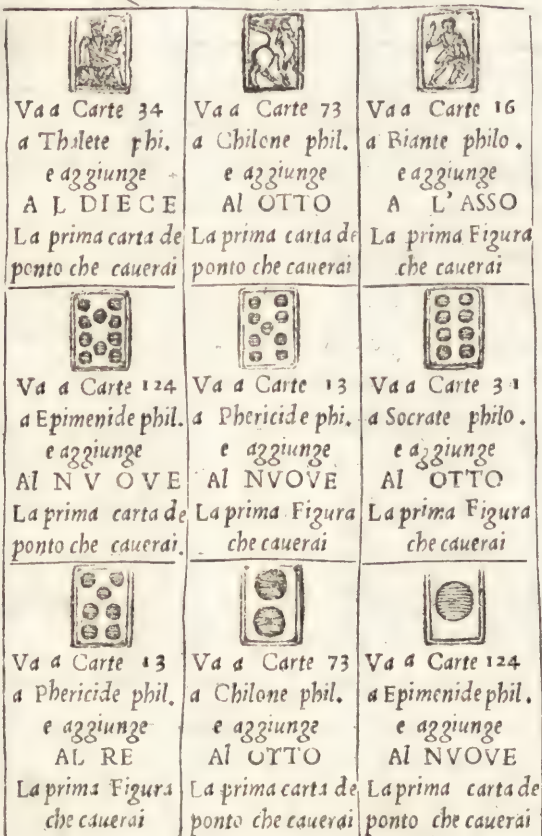 Va a Carte 34
a Thalete phi.
e aggiunge
AL DIECE
La prima carta de
ponto che cauerai
Va a Carte 73
a Chilone phil.
e aggiunge
Al OTTO
La prima carta de
ponto che cauerai
Va a Carte 16
a Biante philo.
e aggiunge
A L'ASSO
La prima Figura
che cauerai
Va a Carte 124
a Epimenide phil.
e aggiunge
Al NVOVE
La prima carta de
ponto che cauerai.
Va a Carte 13
a Phericide phi.
e aggiunge
Al NVOVE
La prima Figura
che cauerai
Va a Carte 31
a Socrate philo.
e aggiunge
Al OTTO
La prima Figura
che cauerai
Va a Carte 13
a Phericide phil.
e aggiunge
AL RE
La prima Figura
che cauerai
Va a Carte 73
a Chilone phil.
e aggiunge
Al OTTO
La prima carta de
ponto che cauerai
Va a Carte 124
a Epimenide phil.
e aggiunge
Al NVOVE
La prima carta de
ponto che cauerai